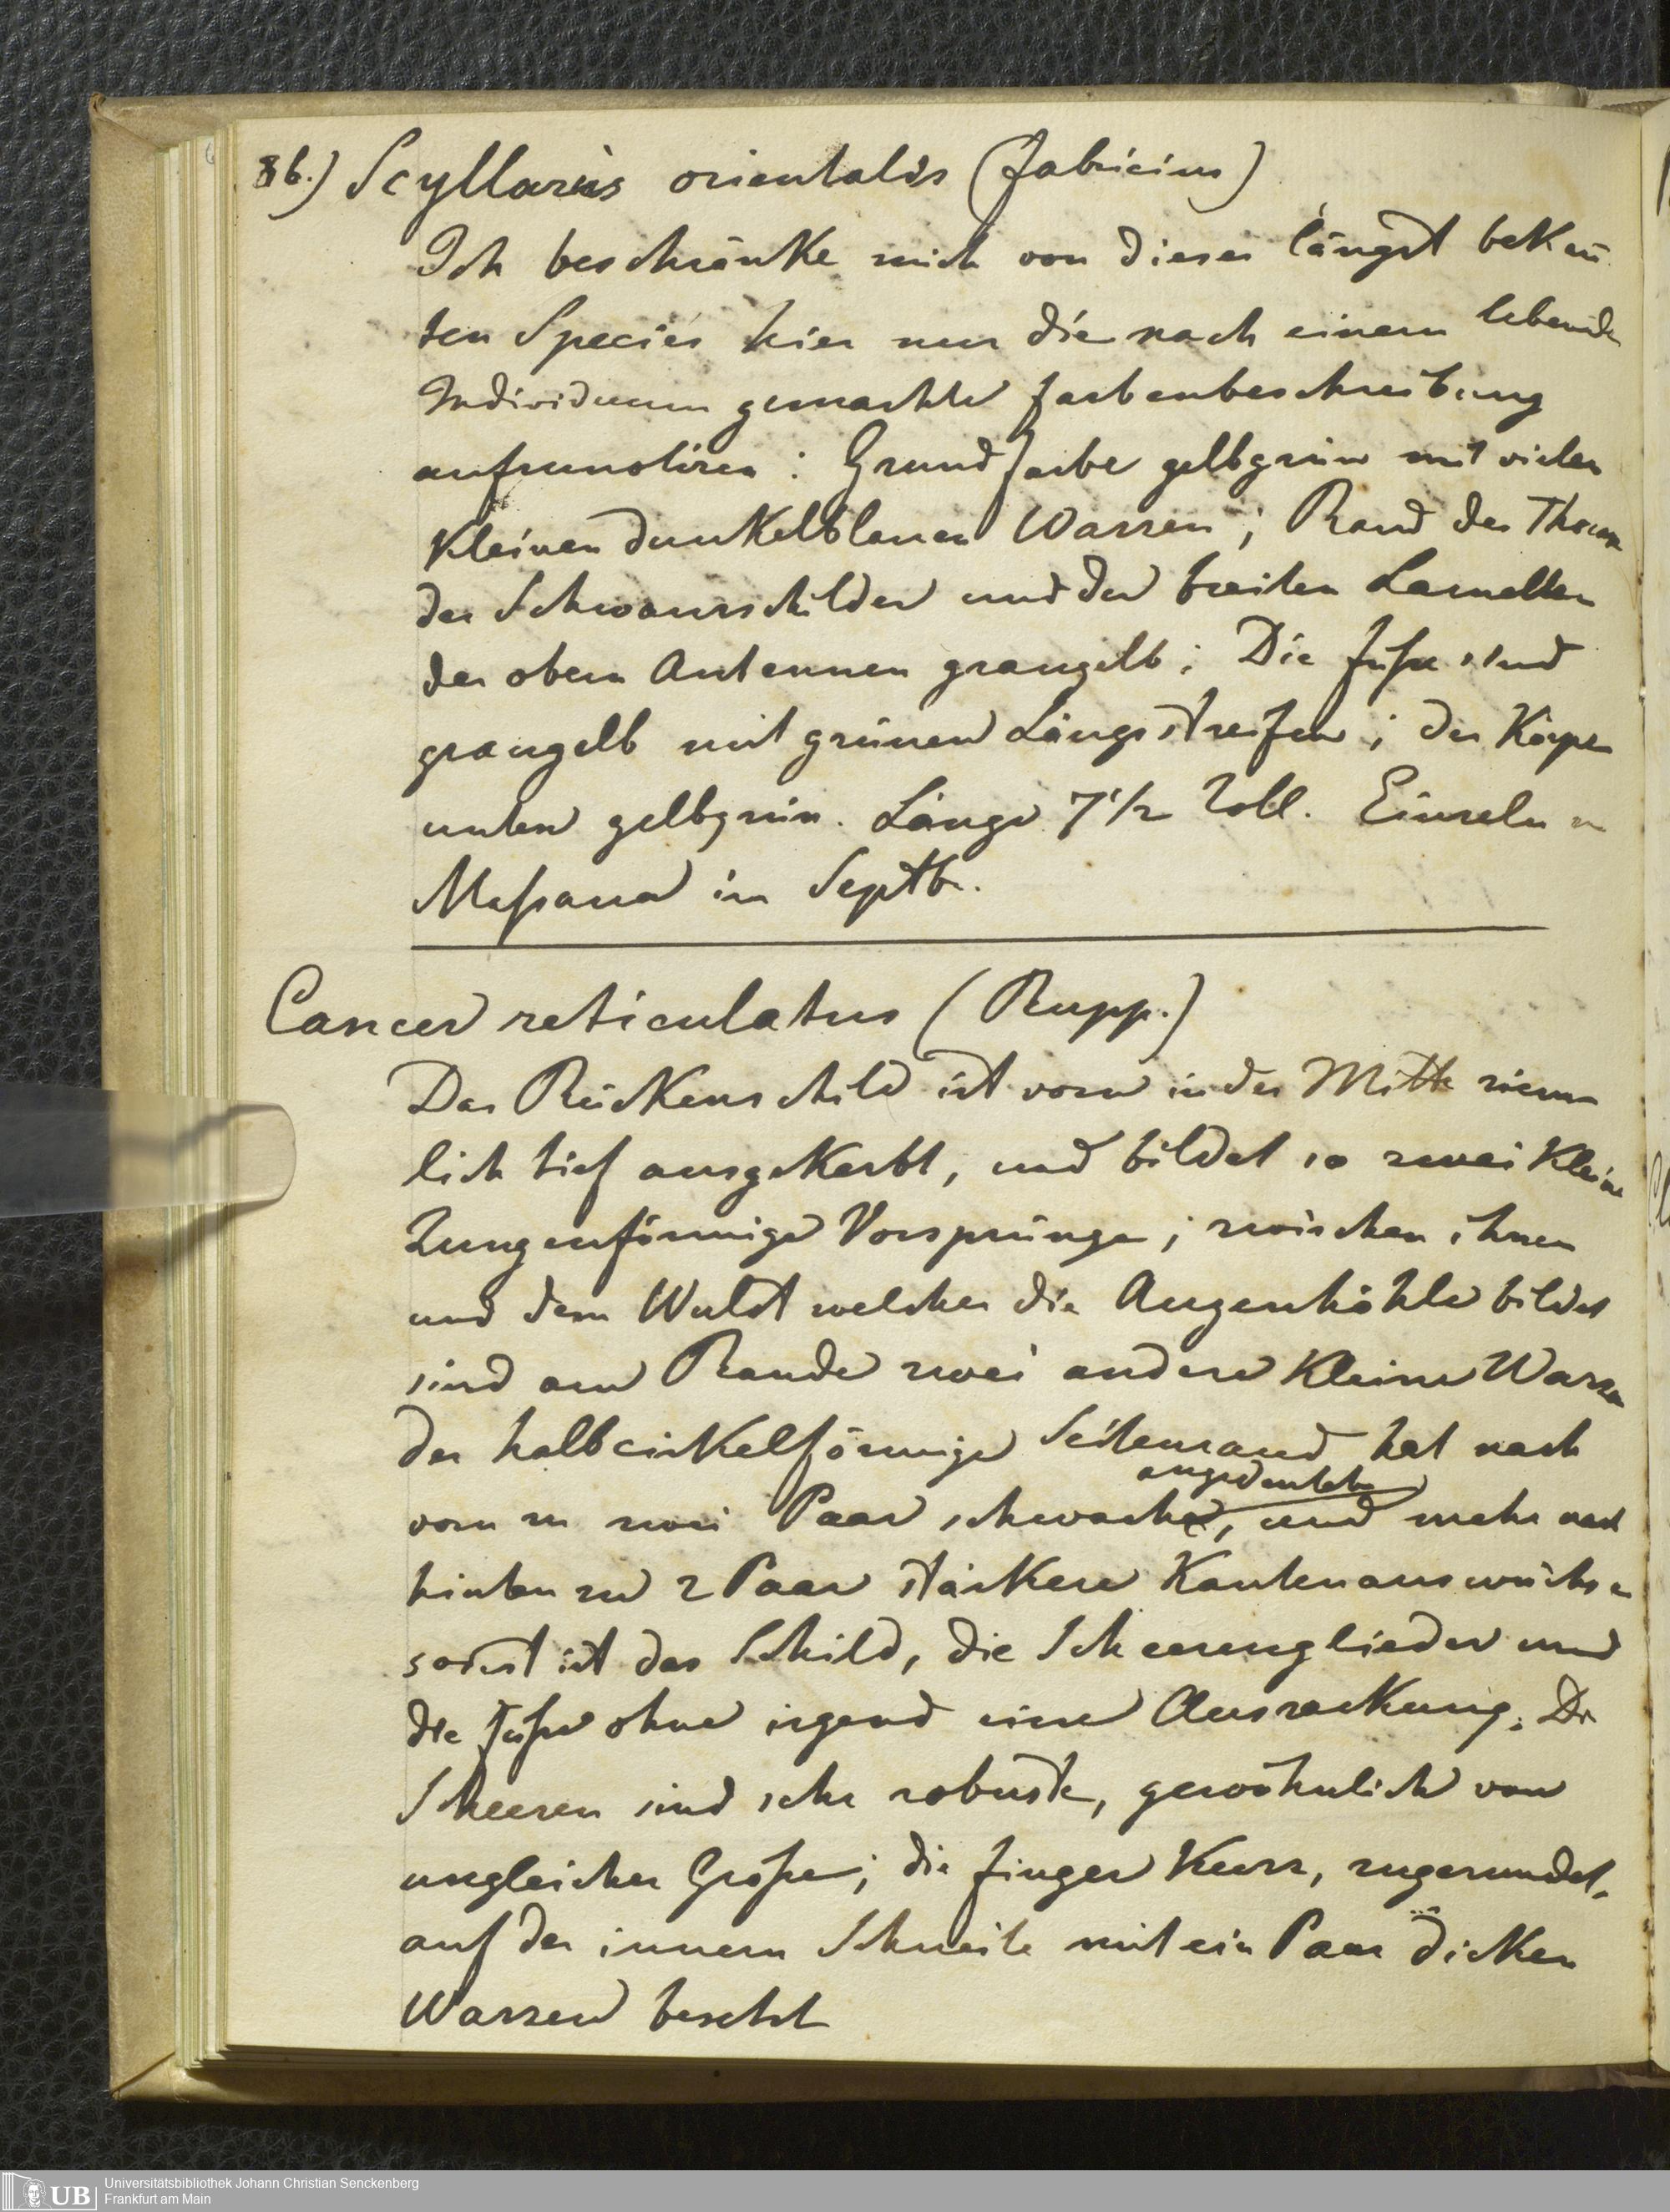 86.) Scyllarus orientalis (Fabricius)
Ich beschränke mich von dieser längst bekan̄
ten Species hier nur die nach einem lebende
Individuum gemachte Farbenbeschreibung
aufzunotiren: Grundfarbe gelbgrün mit vielen
kleinen dunkelblauen Warzen; Rand des Thorax
der Schwanzschilder und der breiten Lamellen
der obern Antennen graugelb; Die Füße sind
graugelb mit grünen Längsstreifen; der Körper
unten gelbgrün. Länge 7 1/2 Zoll. Einzeln
Maßaua im Septb.
Cancer reticulatus (Rupp.)
Das Rückenschild ist vorn in der Mitte ziem
lich tief ausgekerbt, und bildet so zwei kleine
Zungenförmige Vorsprünge; zwischen ihnen
und dem Wulst welcher die Augenhöhle bildet
sind am Rande zwei andere kleine Warzen
der halbcirkelförmige Seitenrand hat nach
angedeutete
vorn zu zwei Paar schwache, und mehr nach
hinten zu 2 Paar stärkere Kantenauswüchse
sonst ist das Schild, die Scheerenglieder und
die Füße ohne irgend eine Auszackung. Die
Scheeren sind sehr robuste, gewöhnlich von
ungleicher Größe; die Finger kurz, zugerundet,
auf der innern Schneite mit ein Paar dicken
Warzen besetzt
UB
Universitätsbibliothek Johann Christian Senckenberg
Frankfurt am Main